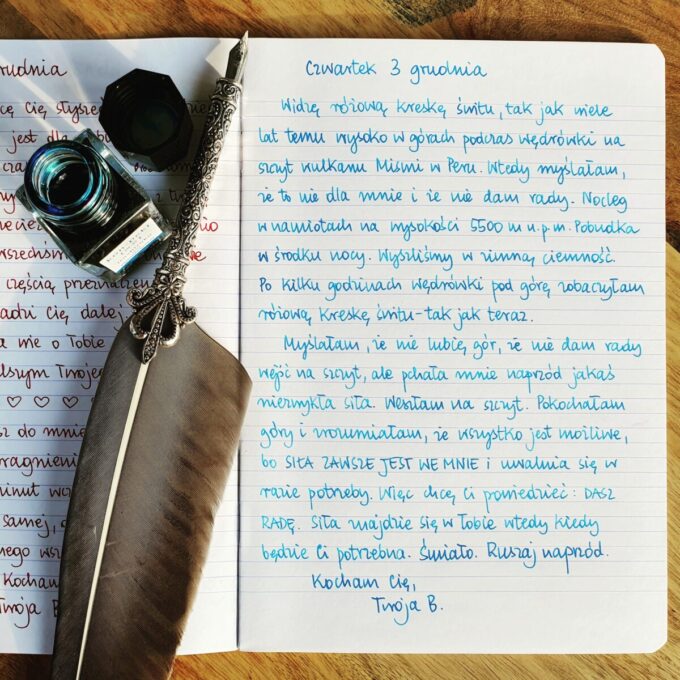 rudnia
jest dla
częścią
adzi Cię dalej
a nie o Tobie
lszym Twoje
sz do mnie
ragnieni
minut wcz
samej,
nego wsz
Kocham
Twoja B
Czwartek 3 grudnia
Widzę różową kreskę świtu, tak jak wiele
lat temu wysoko w górach podczas wędrówki na
szczyt wulkanu Misimi w Peru. Wtedy myślałam,
że to nie dla mnie i że nie dam rady. Nocleg
w namiotach na wysokości 5500 m n.p.m. Pobudka
w środku nocy. Wyszliśmy w zimną ciemność.
Po kilku godzinach wędrówki pod górę zobaczyłam
różową kreskę świtu - tak jak teraz.
Myślałam, że nie lubię gór, że nie dam rady
wejść na szczyt, ale pchała mnie naprzód jakaś
niezwykła siła. Weszłam na szczyt. Pokochałam
góry i zrozumiałam, że wszystko jest możliwe,
bo SIŁA ZAWSZE JEST WE MNIE i uwalnia się w
razie potrzeby. Więc chcę Ci powiedzieć: DASZ
RADĘ. Siła znajdzie się w Tobie wtedy kiedy
będzie Ci potrzebna. Śmiało. Ruszaj naprzód.
Kocham Cię,
Twoja B.